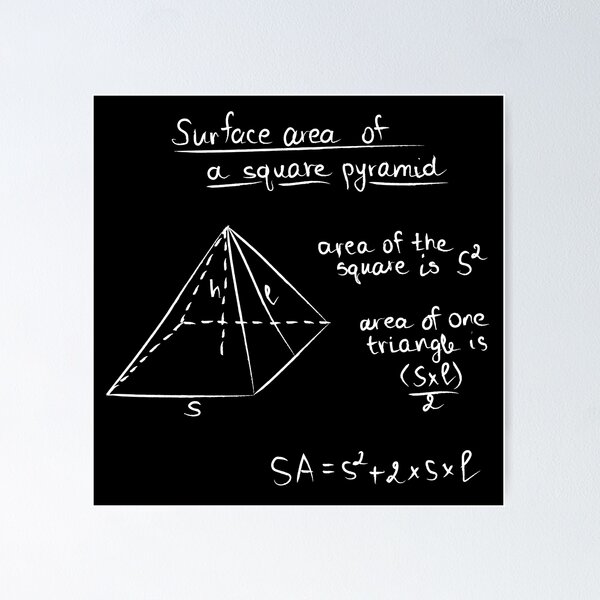 Surface area of
a square pyramid
area of the
square is S²
h
l
area of one
triangle is
(S×l)
2
S
SA = S² + 2×S×l